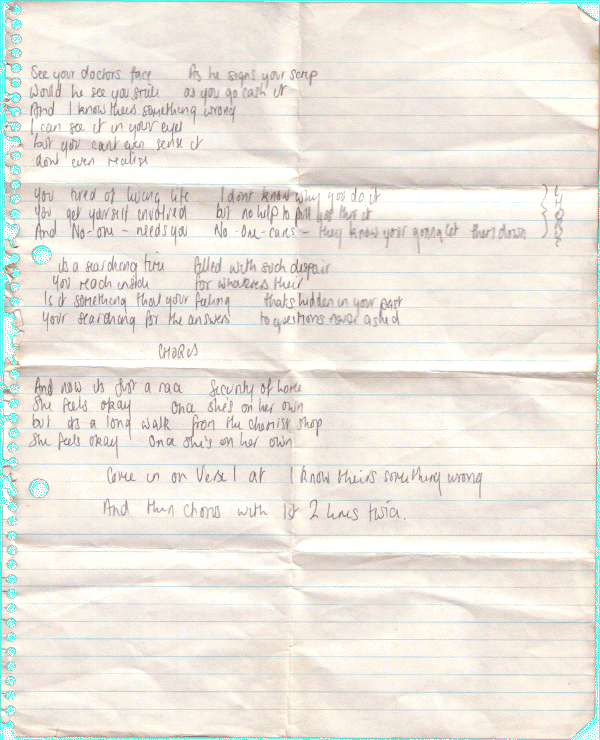 See your doctors face As he signs your scrip
Would he see you smile as you go cash it
And I know theirs something wrong
I can see it in your eyes
but you cant even sense it
dont even realise
You tired of living life I dont know why you do it
You get yourself involved but no help to pull you thru it
And No-one - needs you No-one-cares - they know your gonna let them down
CHORUS
its a searching time filled with such despair
You reach inside for whatevers their
Is it something that your feeling thats hidden in your past
Your searching for the answers to questions never asked
CHORUS
And now its just a race Security of home
She feels okay Once she's on her own
but its a long walk from the chemist shop
She feels okay Once she's on her own
Come in on Verse 1 at I know theirs something wrong
And then Chorus with 1st 2 lines twice.